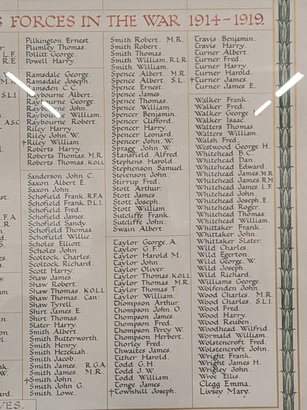 FORCES IN THE WAR 1914-1919.
Pilkington Ernest.
Plumbly Thomas.
Pollitt George.
Powell Harry.
Ramsdale George.
Ramsdale Joseph.
Ramsden C.C.
Raybourne Albert.
Raybourne George.
Raybourne John
Raybourne William
Raybourne Robert.
Riley Harry
Riley John W.
†Riley William
Roberts Harry
Roberts Thomas M.R.
Roberts Thomas K.O.L.L.
Sanderson John C.
Saxon Albert E.
Saxon John.
Schofield Frank. R.F.A
Schofield Frank. D.L.I
Schofield Fred.
Schofield James.
Schofield Sandy.
Schofield Thomas.
Schofield Willie.
Scholes Elliott
Scholes John.
Scoltock Charles.
Scoltock Richard.
Scott Harry.
Shaw James.
Shaw Robert
Shaw Thomas. K.O.L.L
Shaw Thomas
Shaw Tyrell
Shirt James E.
Shirt Thomas.
Slater Harry.
Smith Albert.
Smith Butterworth.
Smith Henry.
Smith Hezekiah
Smith Jacob
Smith James. R.G.A
Smith James. M.R.
†Smith John.
†Smith John G.
Smith Lowe.
Smith Robert. M.R.
Smith Robert.
Smith Thomas.
Smith William. R.L.R
Smith William.
Spence Albert. M.R.
Spence Albert. S.L.
Spence Ernest
Spence James
Spence Thomas
Spence William.
Spencer Benjamin.
Spencer Clifford.
Spencer Harry
Spencer Leonard.
Spencer John. W.
Spragg John W.
Stansfield Alfred
Stephens Harold
Stephenson Samuel
Stevenson John.
Stirrup Fred
Stott Albert.
Stott James
Stott Joseph
Stott William.
Sutcliffe Frank.
Sutcliffe John.
Swain Albert.
Taylor George A.
Taylor G.F.
Taylor Harold M.
Taylor John
Taylor Oliver.
Taylor Thomas. K.O.L.L
Taylor Thomas. M.R.
Taylor Thomas T.
Taylor William
Thompson Arthur
Thompson John. O.
Thompson Frank.
Thompson Fred.
Thompson Percy W.
Thompson Herbert.
Thorley Fred.
Thwaites James
Tither Harold.
Todd G.F.
Todd J.W.
Todd William
Tonge James.
†Townhill Joseph
Travis Benjamin.
Travis Harry.
Turner Albert.
Turner Fred.
Turner Harry.
†Turner James
Turner James E.
Walker Frank.
Walker Fred.
Walker George
Walker Isaac
Walters Thomas
Walters William.
Walsh Fred
Westwood George H
Whitehead B.C.
Whitehead Dan
Whitehead Edward.
Whitehead James. M.R
Whitehead James. R.E.
Whitehead James L.F
Whitehead John
Whitehead Joseph E.
Whitehead Roger.
Whitehead Thomas.
Whitehead William.
Whittaker Frank.
Whittaker John
Whittaker Slater.
Wild Charles.
Wild Egerton.
Wild George W.
Wild Joseph
Wild Richard
Williams George.
Wolfenden John
Wood Charles. M.R.
Wood Charles. S.L.I.
Wood Fred.
Wood Harry.
Wood Reuben
Woodhead Wilfrid.
Wormald William
Wolstencroft Fred.
Wolstencroft John.
Wright Frank.
Wright James H.
Wrigley John
Wroe Ellis
Clegg Emma.
Livsey Mary.
VES.